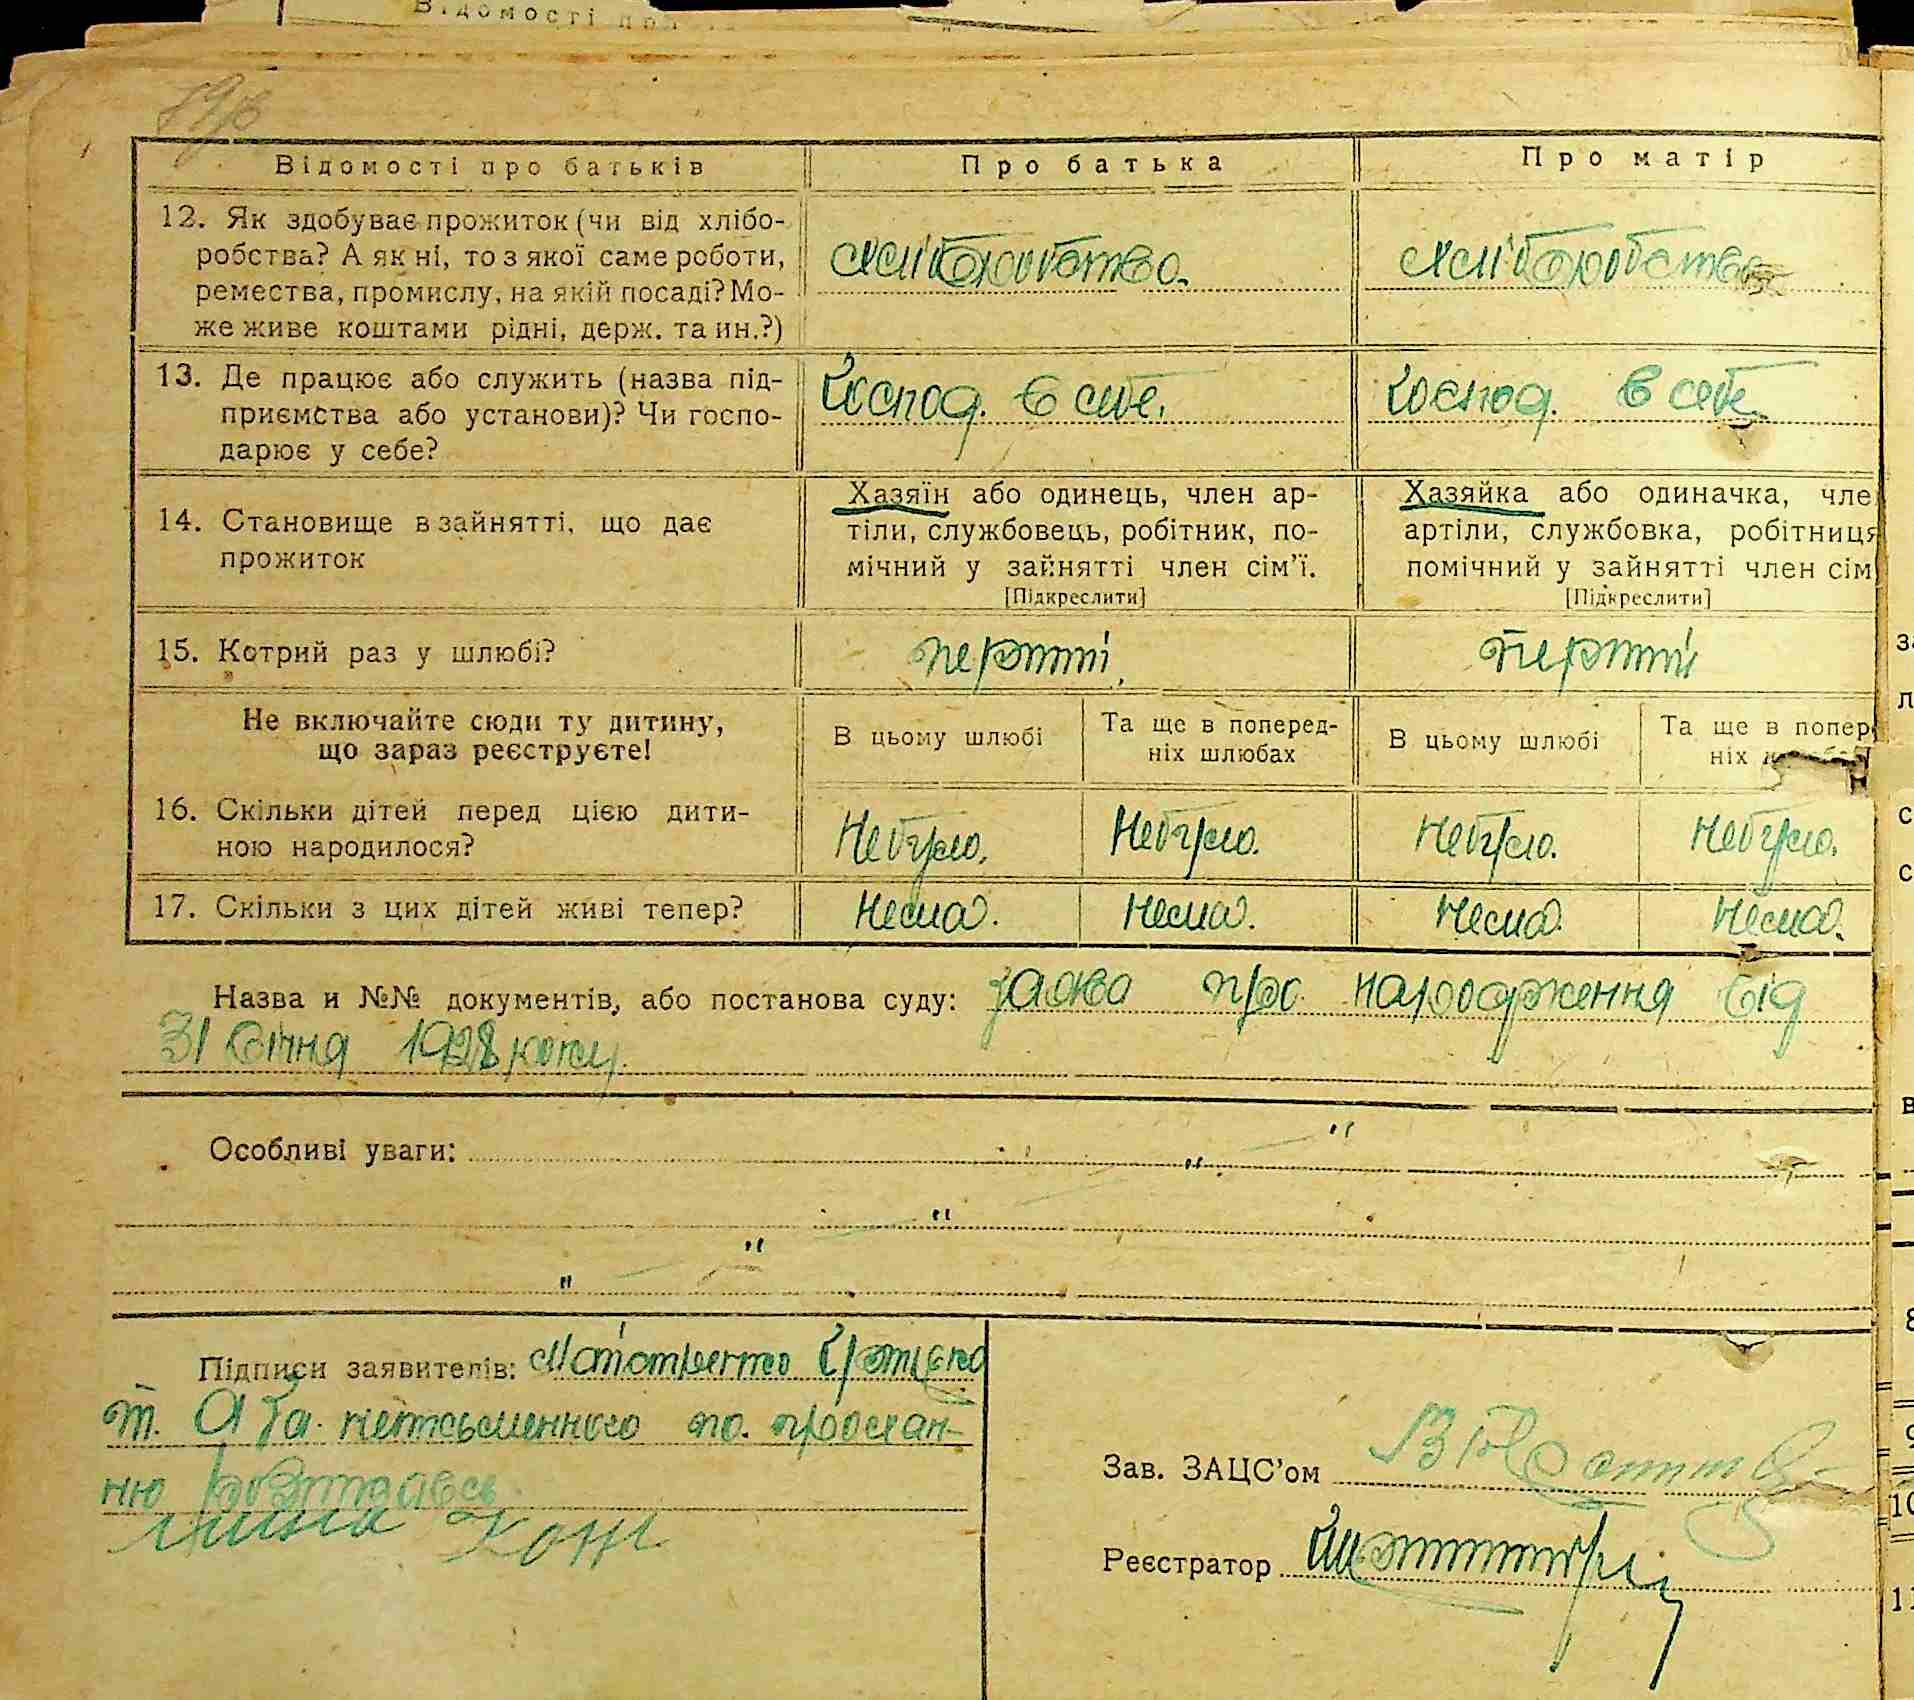 Відомості про
Відомості про батьків
Про батька
Про матір
12. Як здобуває прожиток (чи від хлібо-
робства? А як ні, то з якої саме роботи,
ремества, промислу, на якій посаді? Мо-
же живе коштами рідні, держ. та ин.?)
хліборобство.
хліборобство
13. Де працює або служить (назва під-
приємства або установи)? Чи госпо-
дарює у себе?
Господ. в себе.
Господ. в себе
14. Становище в зайнятті, що дає
прожиток
Хазяїн або одинець, член ар-
тіли, службовець, робітник, по-
мічний у зайнятті член сім'ї.
[Підкреслити]
Хазяйка або одиначка, чле
артіли, службовка, робітниця
помічний у зайнятті член сім
[Підкреслити]
15. Котрий раз у шлюбі?
перший
перший
Не включайте сюди ту дитину,
що зараз реєструєте!
В цьому шлюбі
Та ще в поперед-
ніх шлюбах
В цьому шлюбі
Та ще в попер
ніх
16. Скільки дітей перед цією дити-
ною народилося?
Небуло.
Небуло.
Небуло.
Небуло.
17. Скільки з цих дітей живі тепер?
Нема.
Нема.
Нема.
Нема.
Назва и №№ документів, або постанова суду: заява про народження від
31 Січня 1928 року.
Особливі уваги:
Підписи заявителів:
т. А За. неписьменного по. прохан-
ню розписавсь
Зав. ЗАЦС'ом
Реєстратор